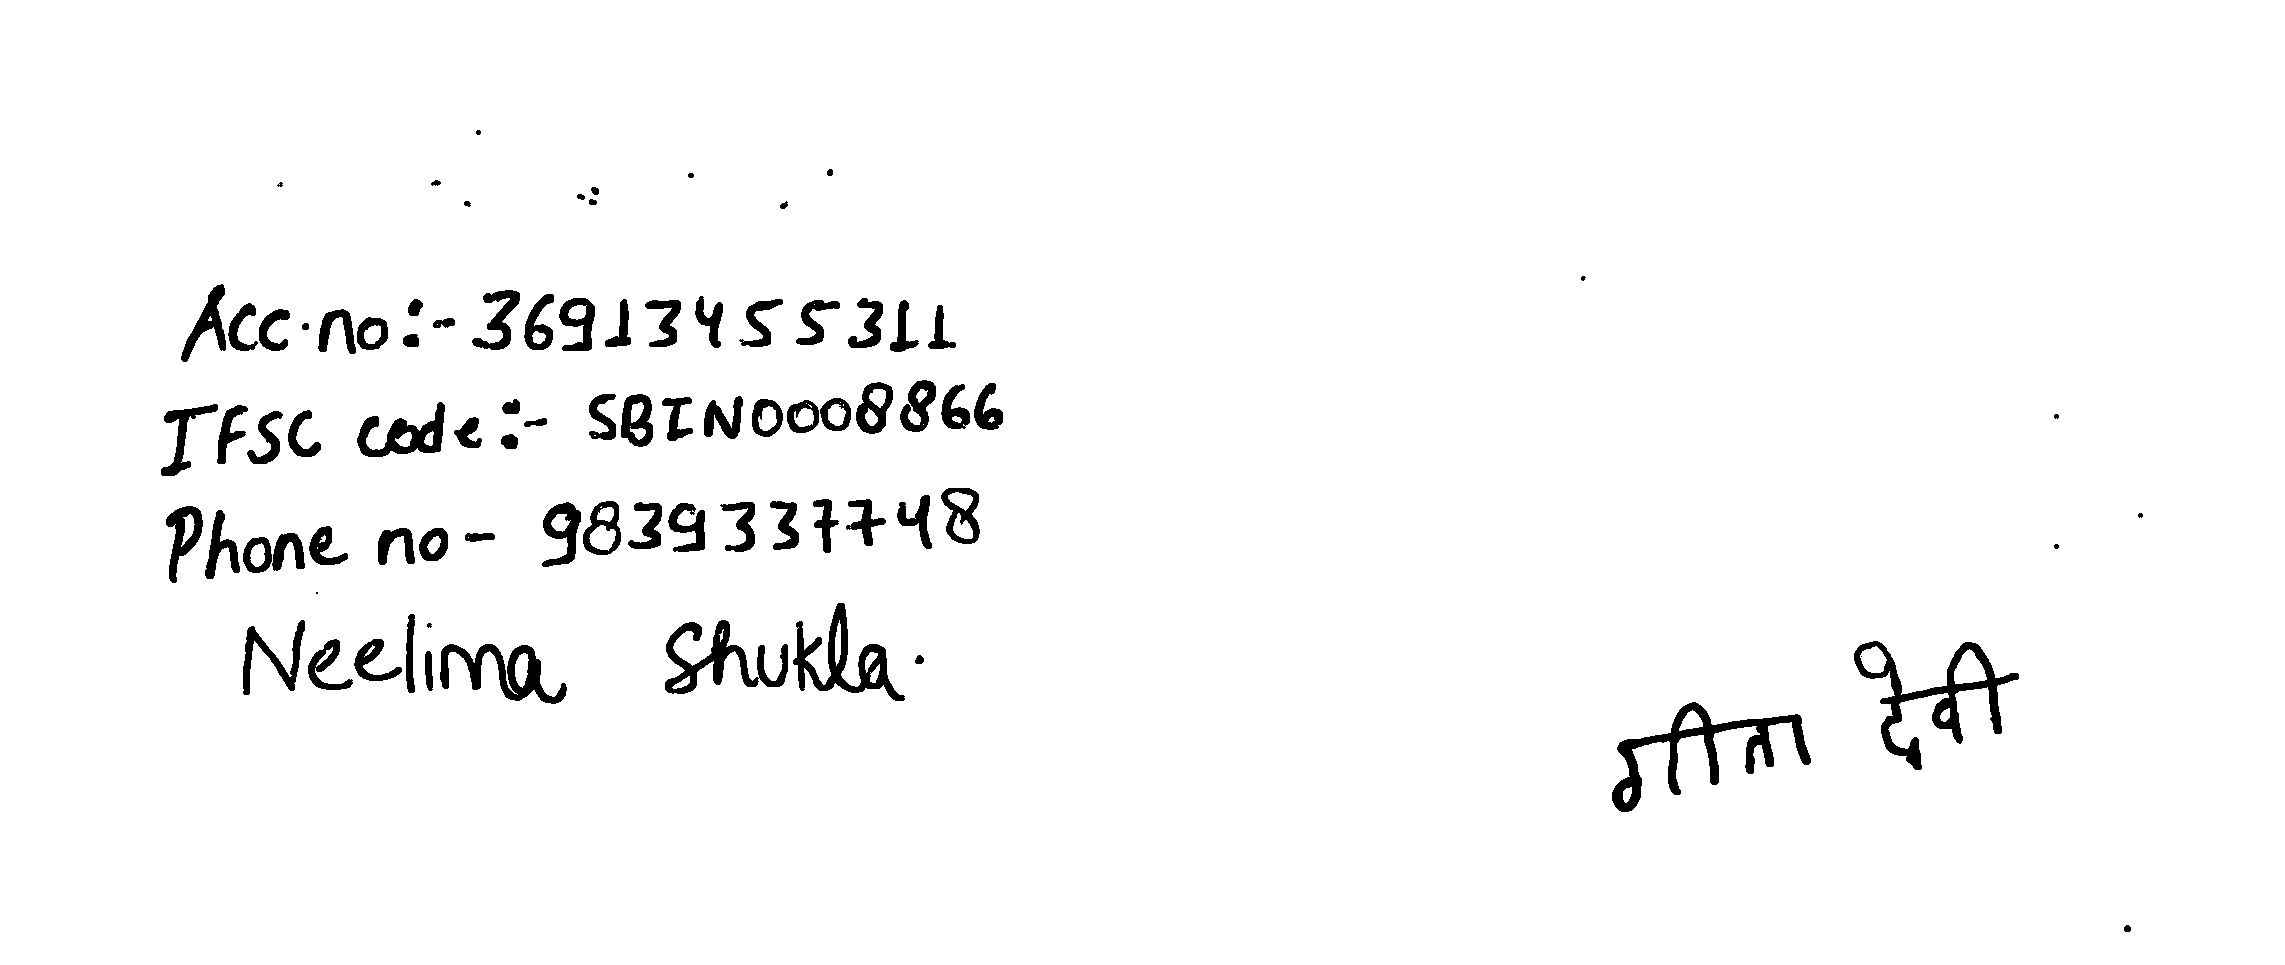 Acc.no:- 36913455311
IFSC code:- SBIN0008866
Phone no- 9839337748
Neelima Shukla.
गीता देवी